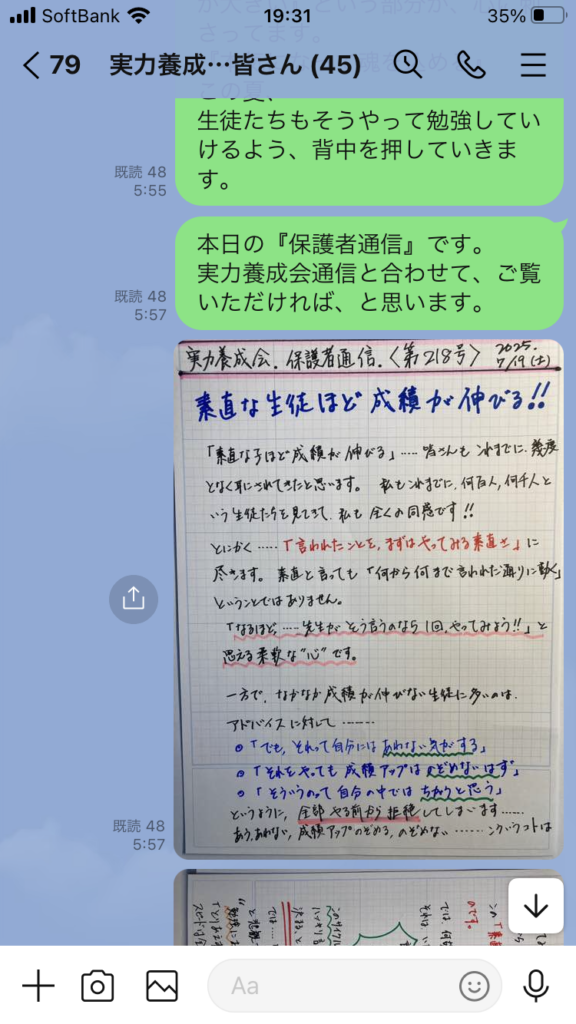 SoftBank 19:31 35%
79 実力養成…皆さん (45)
この夏、
生徒たちもそうやって勉強してい
けるよう、背中を押していきま
す。
既読 48
5:55
本日の『保護者通信』です。
実力養成会通信と合わせて、ご覧
いただければ、と思います。
既読 48
5:57
実力養成会.保護者通信.〈第218号〉 2025. 7/19(土)
素直な生徒ほど 成績が伸びる!!
「素直な子ほど成績が伸びる」…… 皆さんもこれまでに、幾度
となく耳にされてきたと思います。 私もこれまでに、何百人、何千人と
いう生徒たちを見てきて、私も全くの同感です!!
とにかく……「言われたことを、まずはやってみる素直さ」に
尽きます。素直と言っても「何から何まで言われた通りに動く」
ということではありません。
「なるほど、……先生がそう言うのなら1回、やってみよう!!」と
思える柔軟な"心"です。
一方で、なかなか成績が伸びない生徒に多いのは、
アドバイスに対して………
「でも、それって自分にはあわない気がする」
「それをやっても成績アップはのぞめないはず」
「そういうのって自分の中ではちがうと思う」
というように、全部やる前から拒絶してしまいます……
あう、あわない、成績アップのぞめる、のぞめない………
既読 48
5:57
Aa